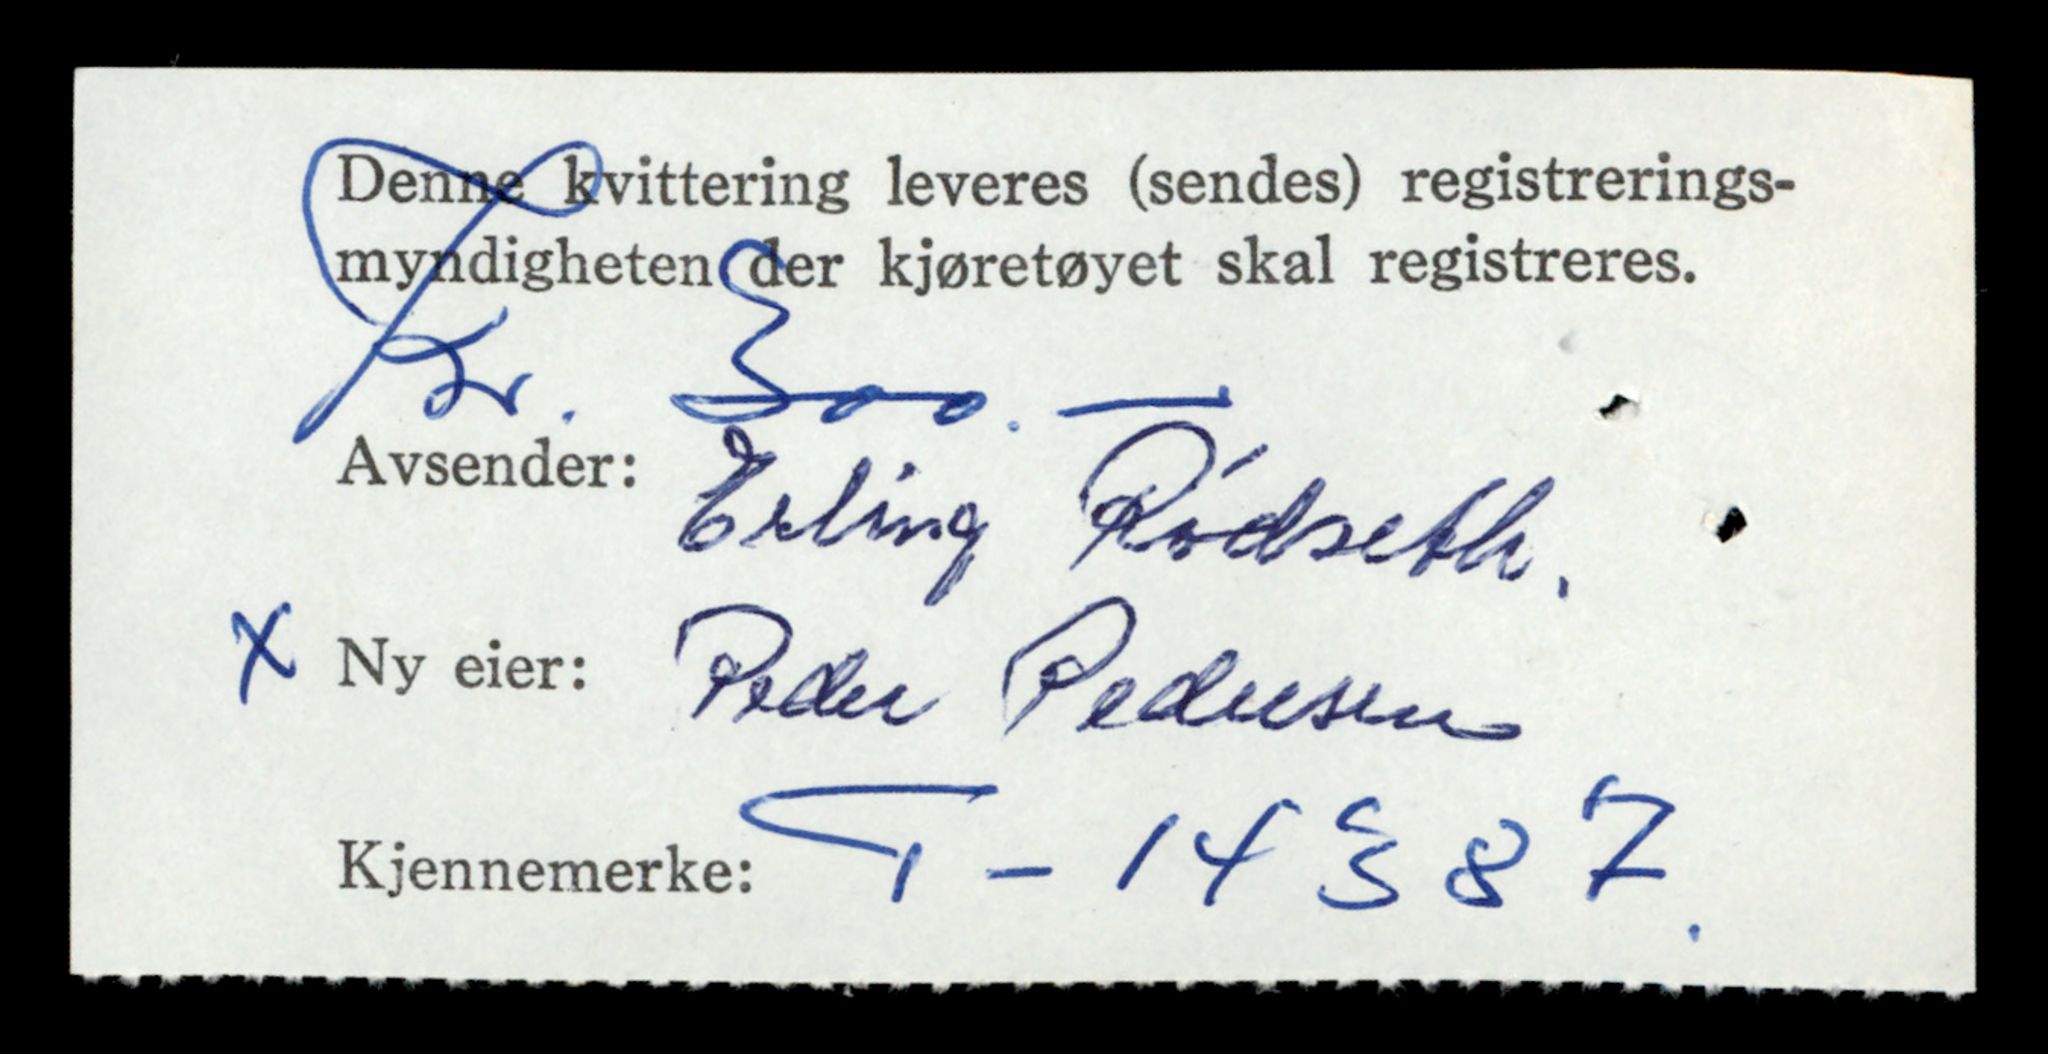 Denne kvittering leveres (sendes) registrerings-
myndigheten der kjøretøyet skal registreres.
Kr. 300. —
Avsender: Erling Rødseth.
X Ny eier: Peder Pedersen
Kjennemerke: T - 14387.